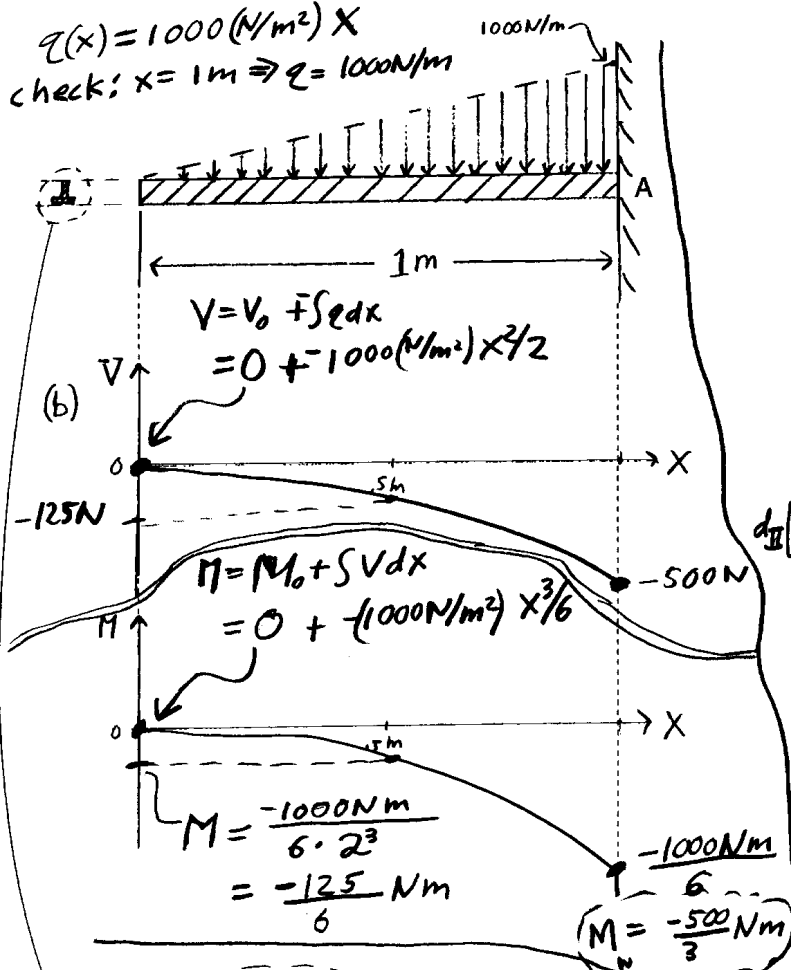 q(x) = 1000 (N/m²) X
check: x = 1m ⇒ q = 1000N/m
1000N/m
II
A
1m
V = V₀ + -∫qdx
= 0 + -1000(N/m²) X²/2
V
(b)
0
X
.5m
-125N
-500N
d_II
M = M₀ + ∫Vdx
= 0 + -(1000N/m²) X³/6
M
0
X
.5m
M = -1000Nm / 6·2³
= -125/6 Nm
-1000Nm / 6
M = -500/3 Nm